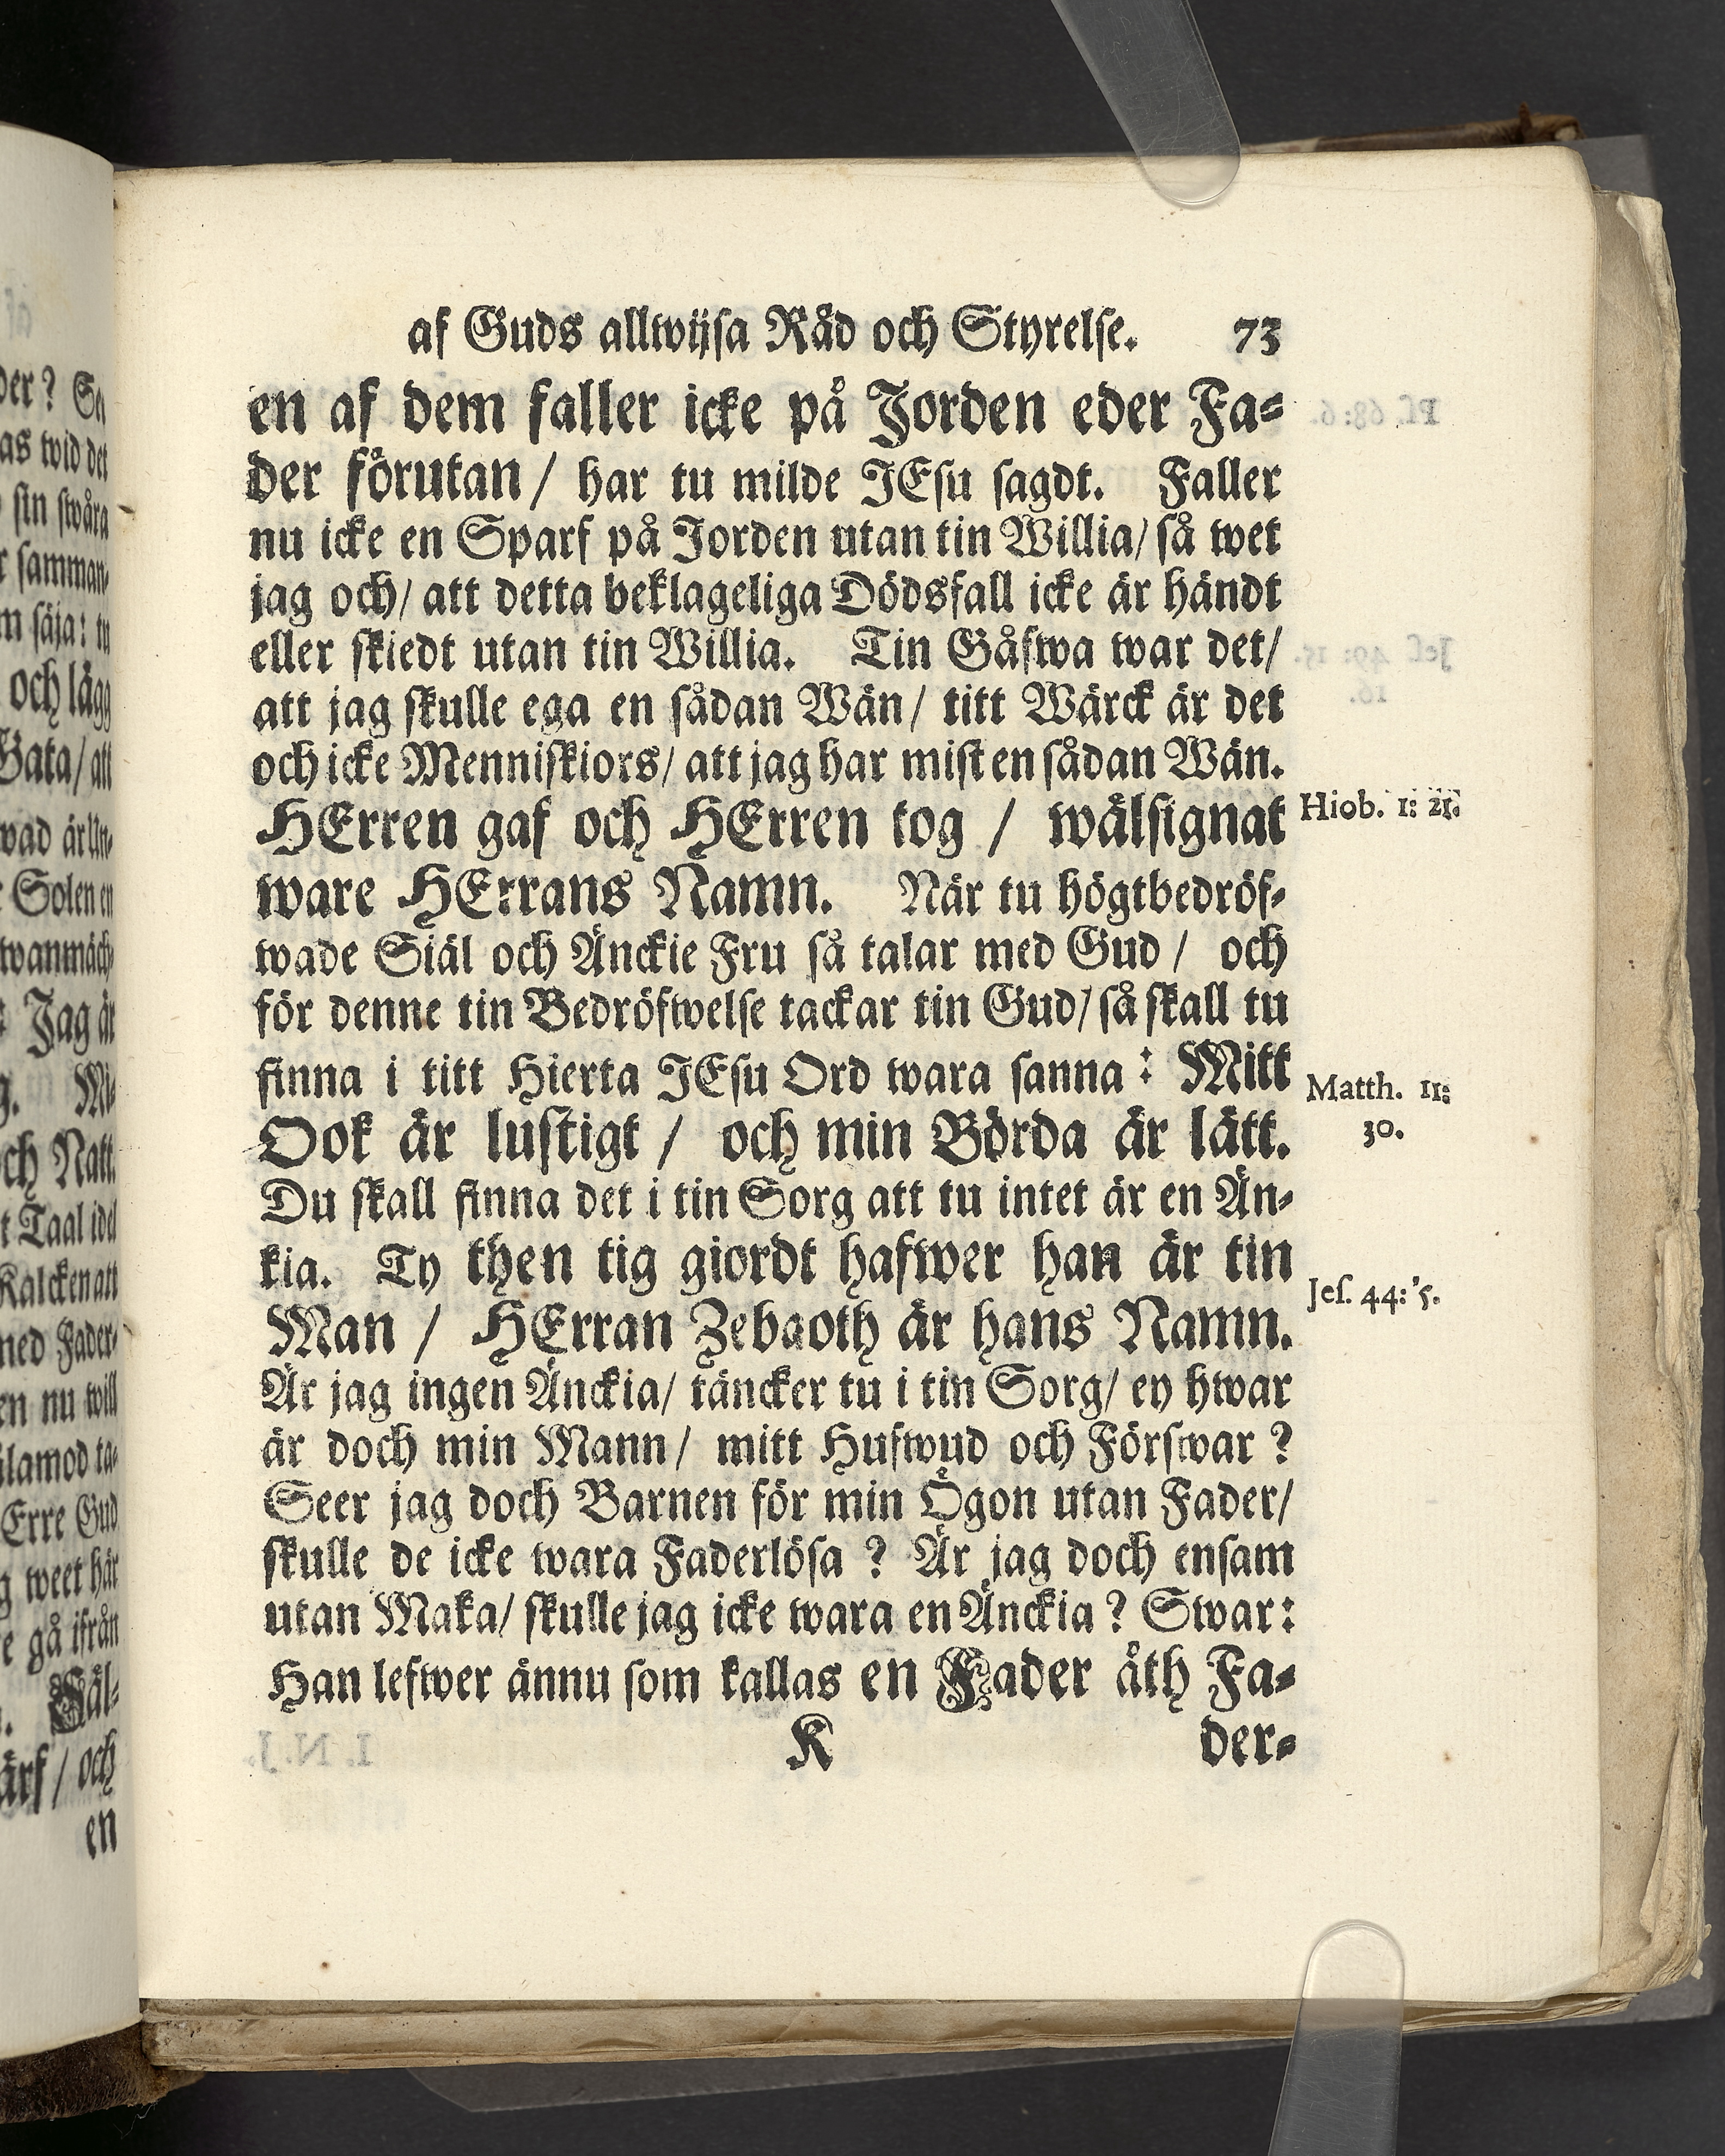 af Guds allwijsa Råd och Styrelse. 73
en af dem faller icke på Jorden eder Fa-
der förutan / har tu milde JEsu sagdt. Faller
nu icke en Sparf på Jorden utan tin Willia/ så wet
jag och/ att detta beklageliga Dödsfall icke är händt
eller skiedt utan tin Willia. Tin Gåfwa war det/
att jag skulle ega en sådan Wän/ titt Wärck är det
och icke Menniskiors/ att jag har mist en sådan Wän.
HErren gaf och HErren tog / wälsignat
Hiob. 1: 21.
ware HErrans Namn. När tu högtbedröf-
wade Siäl och Änckie Fru så talar med Gud / och
för denne tin Bedröfwelse tackar tin Gud/ så skall tu
finna i titt Hierta JEsu Ord wara sanna : Mitt
Matth. 11:
30.
Ook är lustigt / och min Börda är lätt.
Du skall finna det i tin Sorg att tu intet är en Än-
kia. Ty then tig giordt hafwer han är tin
Jes. 44: 5.
Man / HErran Zebaoth är hans Namn.
Är jag ingen Änckia/ täncker tu i tin Sorg/ ey hwar
är doch min Mann/ mitt Hufwud och Förswar ?
Seer jag doch Barnen för min Ögon utan Fader/
skulle de icke wara Faderlösa ? Är jag doch ensam
utan Maka/ skulle jag icke wara en Änckia ? Swar:
Han lefwer ännu som kallas en Fader åth Fa-
K der-